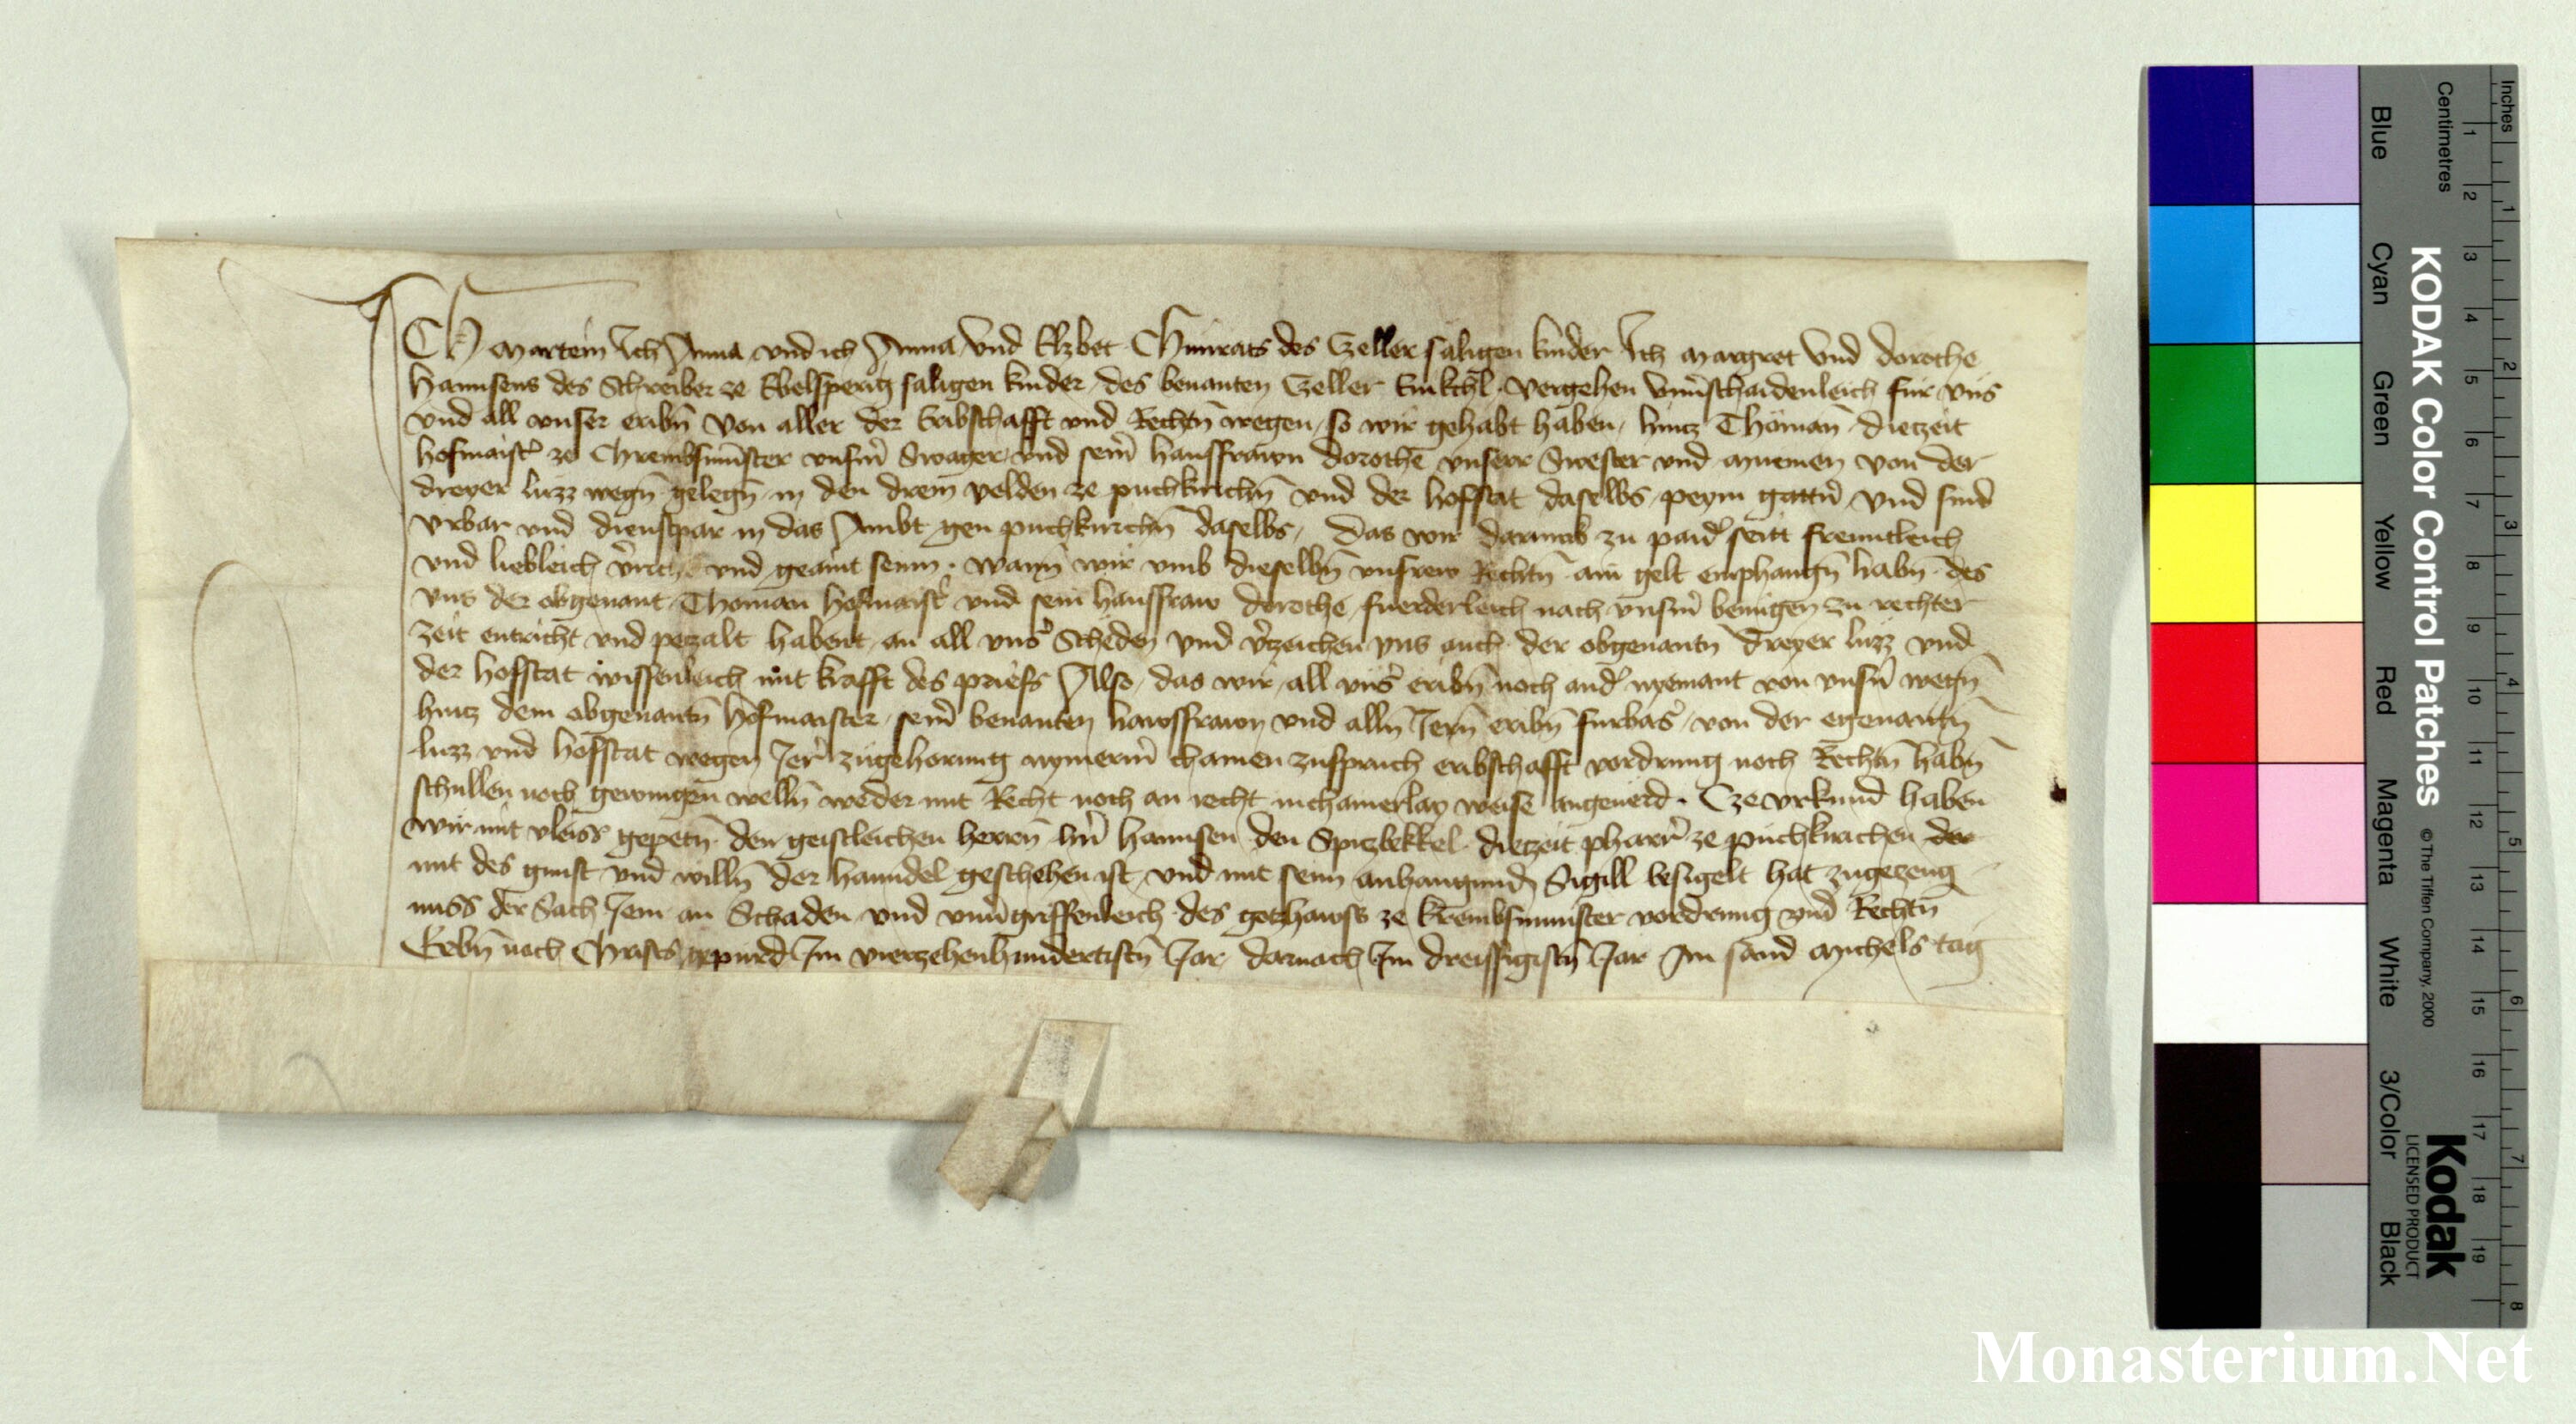 ICH Martein Ich Anna vnd ich Anna vnd Elzbet Chunrats des Zeller säligen kinder Ich Margret vnd Dorothe
Hannsens des Schreiber ze Ebelsperg saligen kinder des benanten Zeller Enikchl vergehen vnuerschaidenleich fur vns
vnd all vnser eribn̄ von aller der Eribschafft vnd Rechtn̄ wegen so wir gehabt haben hincz Thoman̄ dieczeit
hofmaist̓ ze Chrembsmūster vnserm̄ Swager vnd sein̓ hausfrawn Dorothe vnserr Swester vnd Muemen von der
dreyer luzz wegn̄ gelegn̄ in den drein velden ze puchkirichn̄ vnd der hofstat daselbs peym gattn̓ vnd sind
vrbar vnd dienstpar in das Ambt gen puchkirichn̄ daselbs das wir darumb zu paid̓ seitt frenntleich
vnd liebleich vnd geaint seinn wann̄ wir vmb dieselbn̄ vnsrew Rechtn̄ ain gelt emphangn̄ habn̄ des
vns der obgenant Thoman Hofmaist̓ vnd sein hausfraw dorothe fuerderleich nach vnserm̄ benugen zu rechter
zeit entricht vnd peczalt habent an all vns̓ Scheden vnd v̓czeichen vns auch der obgenantn̄ dreyer luzz vnd
der hofstat wissenleich mit krafft des priefs Also das wir all vns̓ eribn̄ noch and̓ nyemant von vnsn̓ wegn̄
hincz dem obgenantn̄ hofmaister sein̓ benanten hawsfrawn vnd alln̄ Jern̄ eribn̄ furbas̓ von der egenantn̄
luzz vnd hofstat wegen Jer̓ zugehorung nymerm̓ chainen zuspruch eribschafft vordrung noch Rechtn̄ habn̄
schullen noch gewingen welln̄ weder mit Recht noch an recht in chainerlay weise angeuerd Cze vrkund haben
wir mit vleiss gepetn̄ den geistleichen herrn̄ hn̓ Hannsen den Spizbekkel dieczeit pharr̓ ze puchkirichen der
mit des gunst vnd willn̄ der hanndel geschehen ist vnd mit seim anhangund̓ Sigill besigelt hat zugeczeug
nuss der Sach Jem an Schaden vnd vnu̓griffenleich des gotzhawss ze krembsmunster vordrung vnd Rechtn̄
Gebn̄ nach Christs gepurd Im vierczehenhundertistn̄ Jar darnach Im dreissigistn̄ Jar Am sand Michels tag
Inches
Centimetres
KODAK Color Control Patches
© The Tiffen Company, 2000
Kodak
LICENSED PRODUCT
Blue
Cyan
Green
Yellow
Red
Magenta
White
3/Color
Black
1 2 3 4 5 6 7 8 9 10 11 12 13 14 15 16 17 18 19
1 2 3 4 5 6 7 8
Monasterium.Net